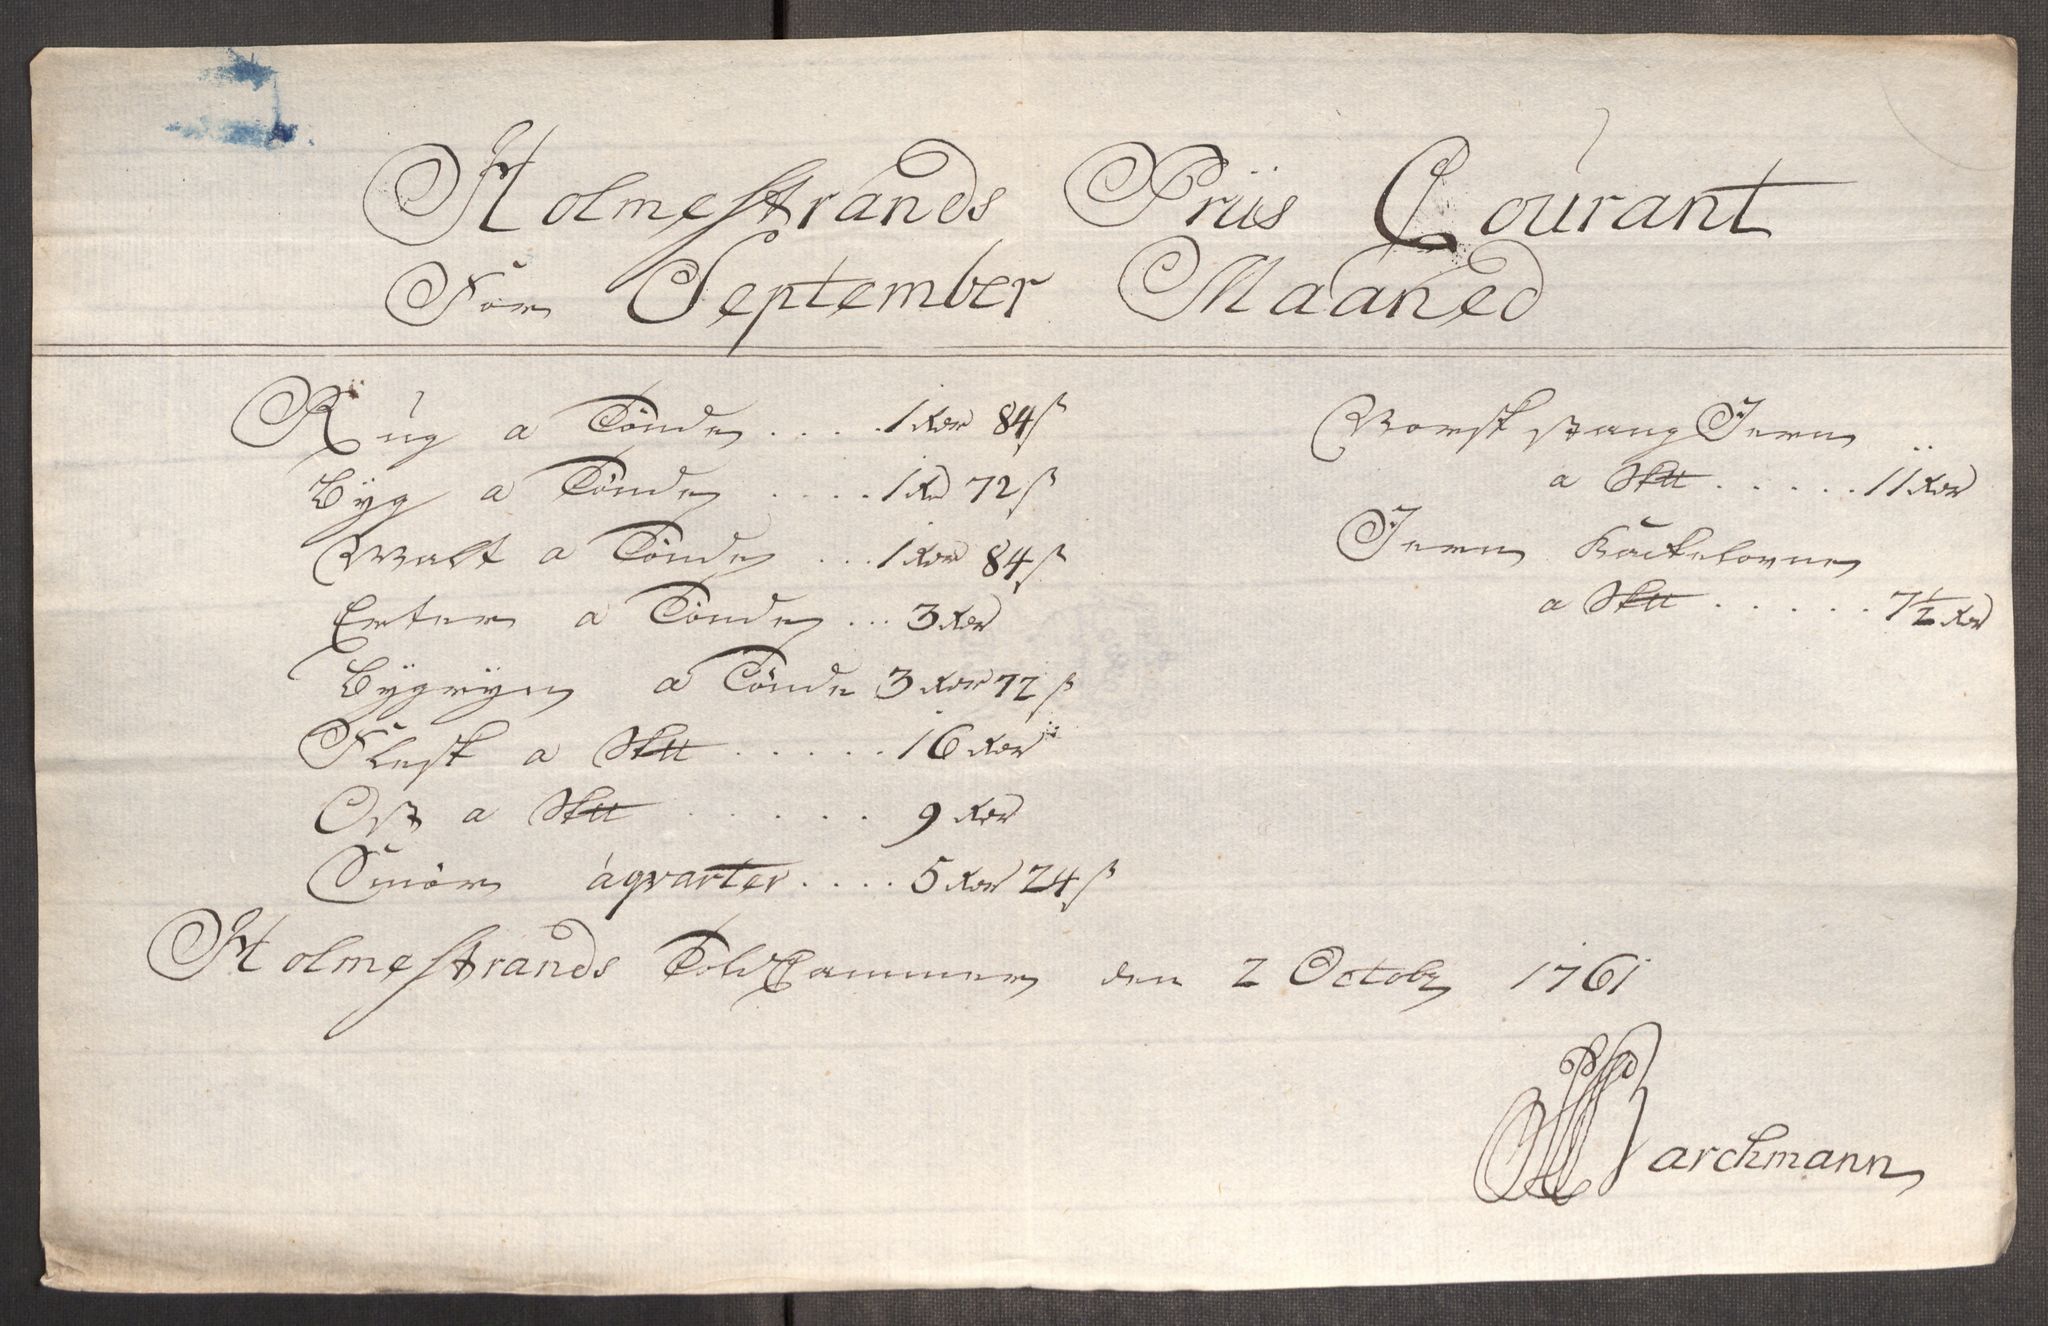 Holmestrands Priis Courant
For September Maaned
Rug a Tønde .... 1 Rdr 84 ß
Byg a Tønde .... 1 Rd 72 ß
Malt a Tønde ... 1 Rdr 84 ß
Erter a Tønde ... 3 Rdr
Byggryn a Tønde 3 Rdr 72 ß
Flesk a Sktt ..... 16 Rdr
Ost a Sktt ...... 9 Rdr
Smør á qvarter .... 5 Rdr 24 ß
Norsk Stang Jern
a Sktt ..... 11 Rdr
Jern Kackelovne
a Sktt ..... 7½ Rd
Holmestrands Told Cammer den 2 Octobr 1761
Barchmann